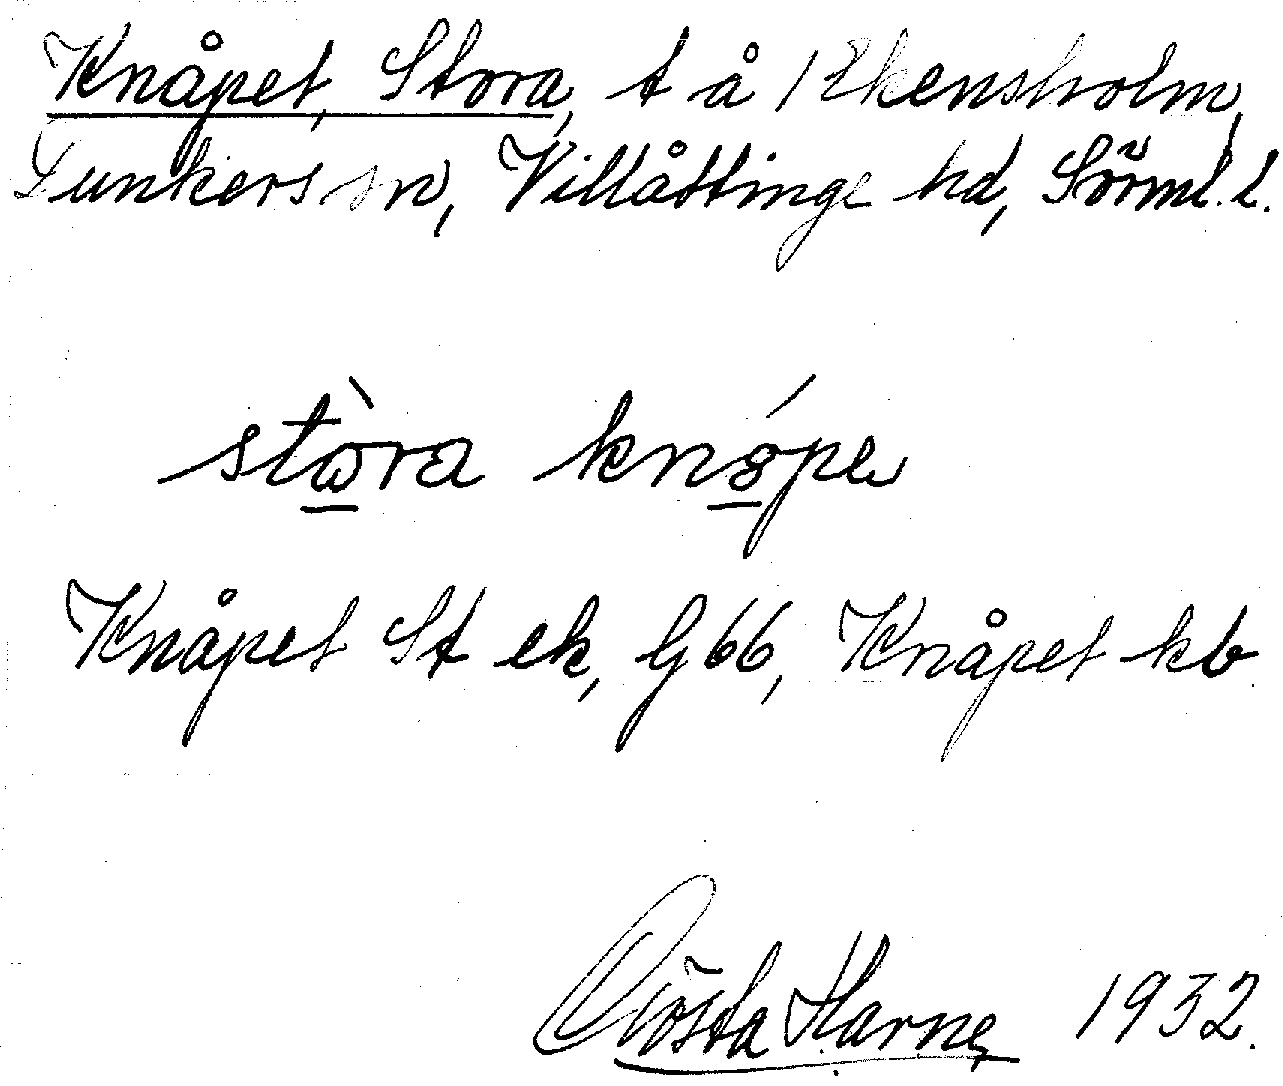 Knåpet, Stora, t å 1 Ekensholm,
Dunkers sn, Villåttinge hd, Sörml. l.
stora knåpe
Knåpet St ek, G 66, Knåpet kb
Gösta Harne 1932.